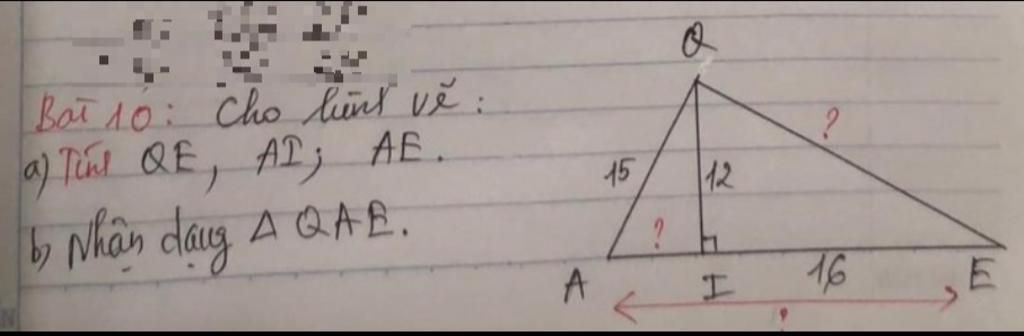 Bài 10: Cho hình vẽ:
a) Tính QE, AI; AE.
b) Nhận dạng Δ QAE.
Q
?
15
12
?
16
A
I
E
?